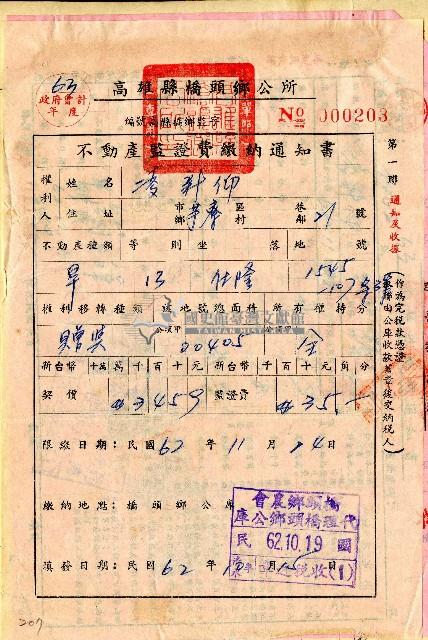 高雄縣橋頭鄉公所
63
政府會計
年度
No 000203
不動產監證費繳納通知書
第一聯 通知及收據
權利人
姓名
住址
市鄉
區村
巷鄰
21 號
不動產種類 等則 坐落 地號
旱 13 仕隆 1545
權利移轉種類 該地號總面積 所有權持分
公頃甲
公頃甲
國史館臺灣文獻館
TAIWAN HISTORICA
00405 全
新台幣 十萬 萬 千 百 十 元 新台幣 千 百 十 元 角 分
契價 3459 監證費 35
限繳日期：民國 62 年 11 月 14 日
繳納地點：橋頭鄉公庫
橋頭鄉農會
代理橋頭鄉公庫
民 62.10.19 國
收稅(1)
填發日期：民國 62 年 月 日
(作為完稅款憑證
聯由公庫收款蓋章後交納稅人)
207